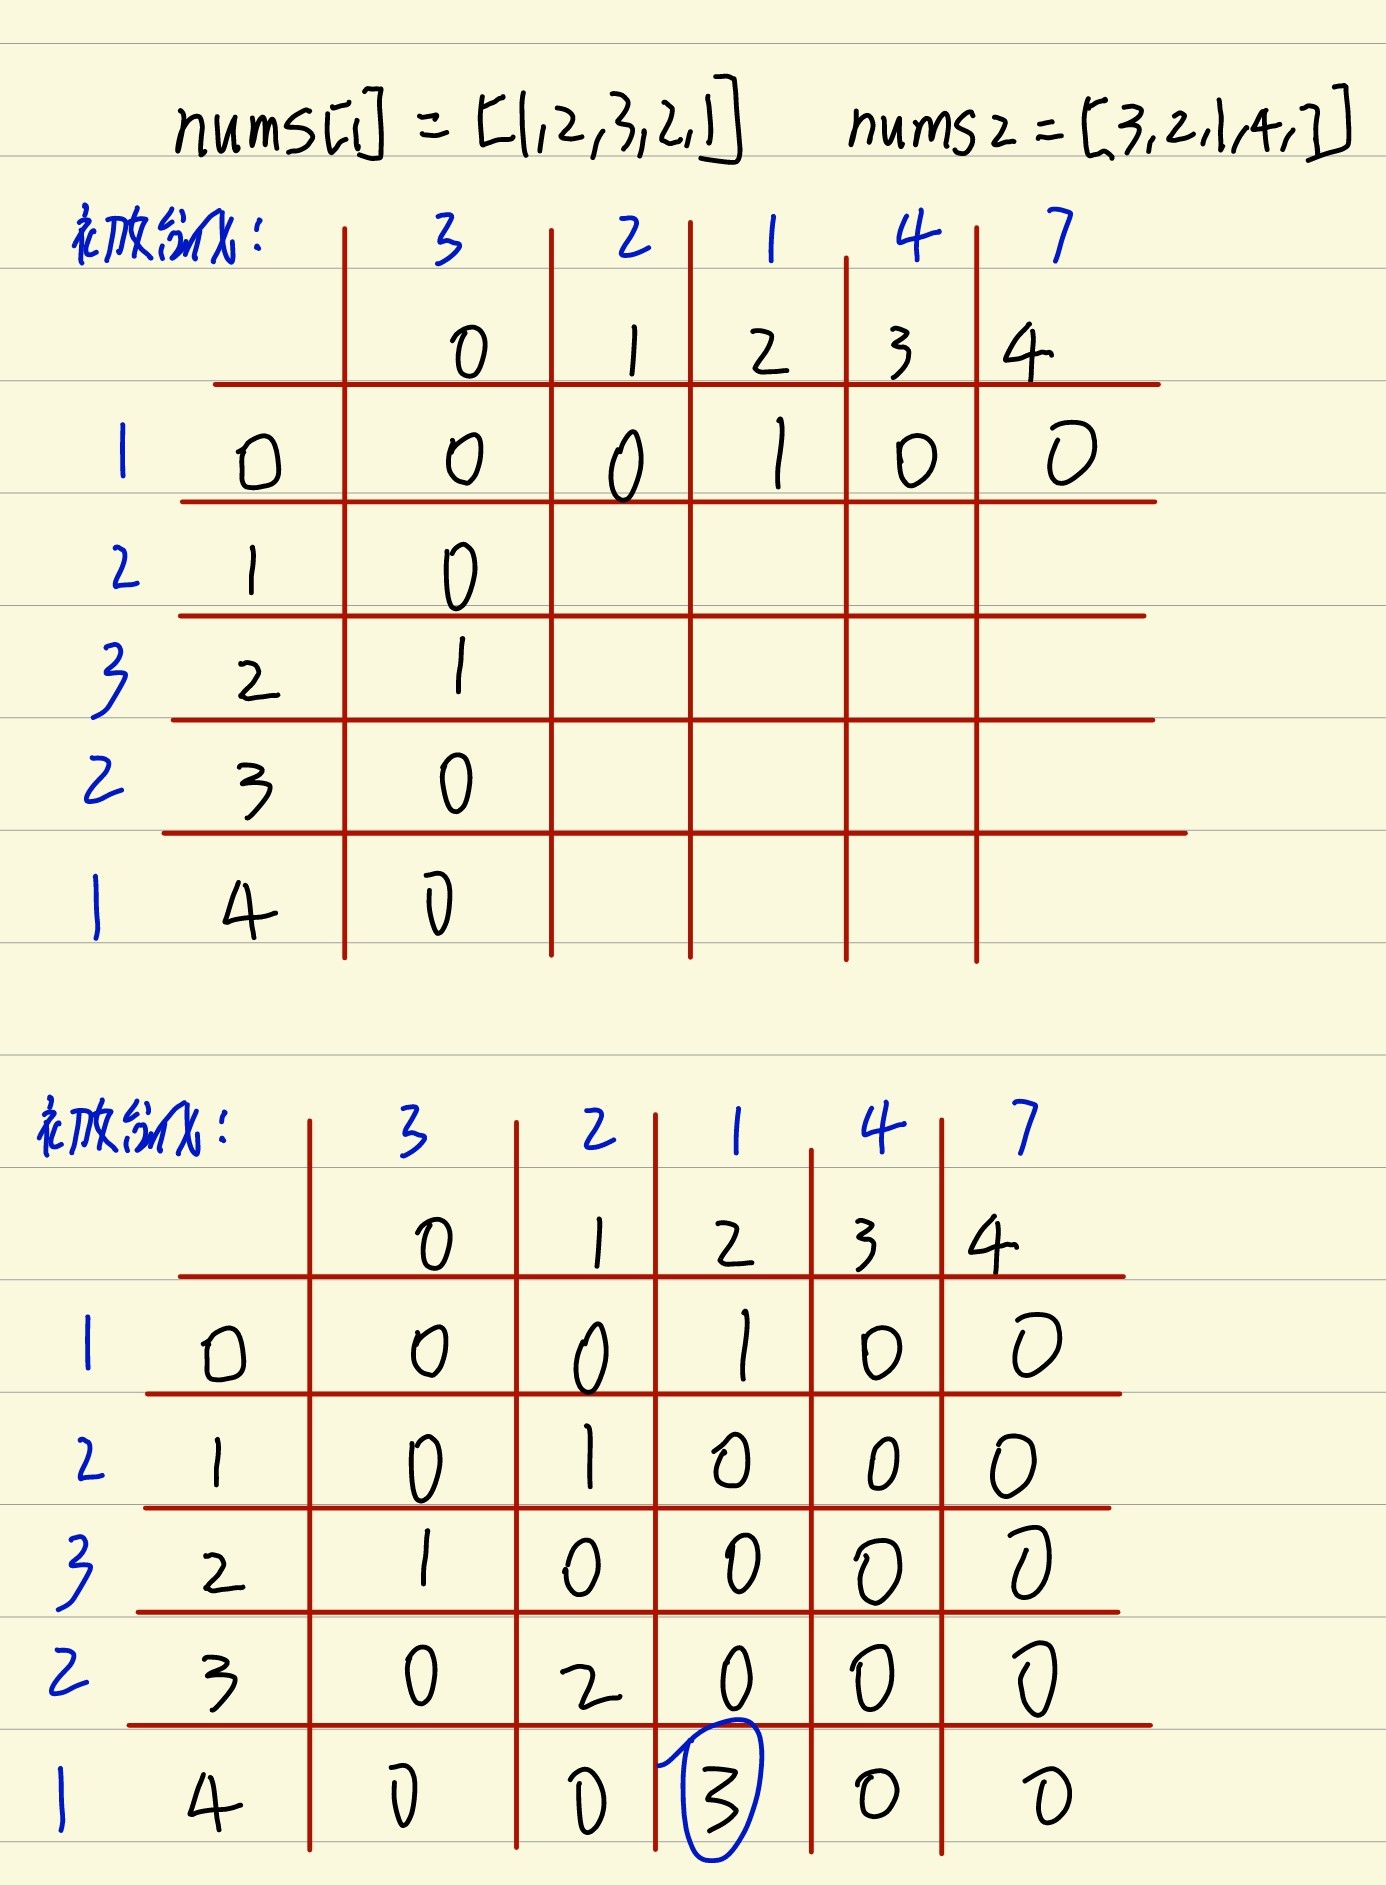 nums[i] = [1,2,3,2,1] nums2 = [3,2,1,4,7]
3 2 1 4 7
0 1 2 3 4
1 0 0 0 1 0 0
2 1 0
3 2 1
2 3 0
1 4 0
3 2 1 4 7
0 1 2 3 4
1 0 0 0 1 0 0
2 1 0 1 0 0 0
3 2 1 0 0 0 0
2 3 0 2 0 0 0
1 4 0 0 3 0 0